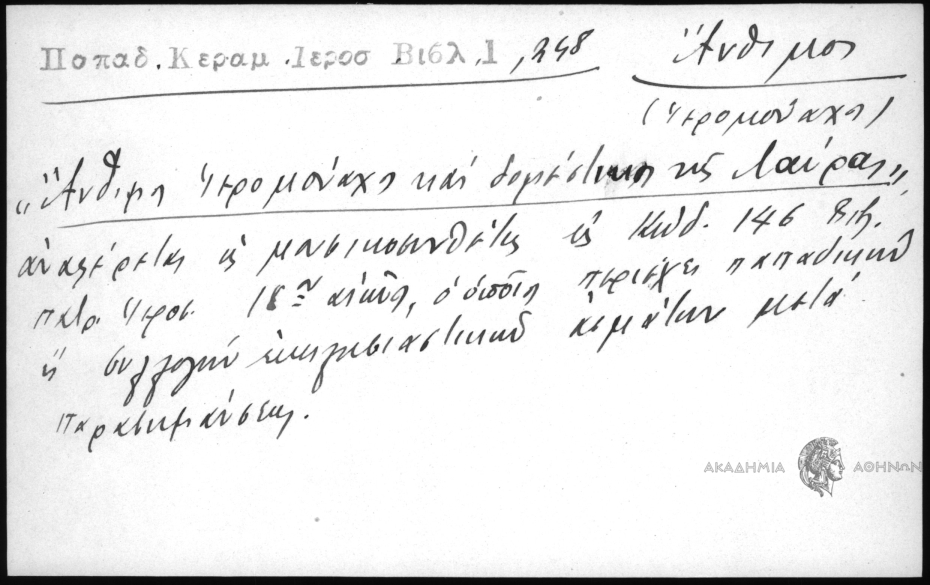 Παπαδ. Κεραμ. Ιεροσ Βιβλ. 1, 248
Ἄνθιμος
(ἱερομόναχος)
"Ἄνθιμος ἱερομόναχος καί δομέστικος τῆς Λαύρας",
ἀναφέρεται ὡς μουσικοσυνθέτης εἰς Κώδ. 146 Βιβ.
πατρ. Ἱεροσ. 18ου αἰῶνος, ὁ ὁποῖος περιέχει παπαδικήν
ἤ συλλογήν ἐκκλησιαστικῶν ᾀσμάτων μετά
παρασημάνσεως.
ΑΚΑΔΗΜΙΑ ΑΘΗΝΩΝ